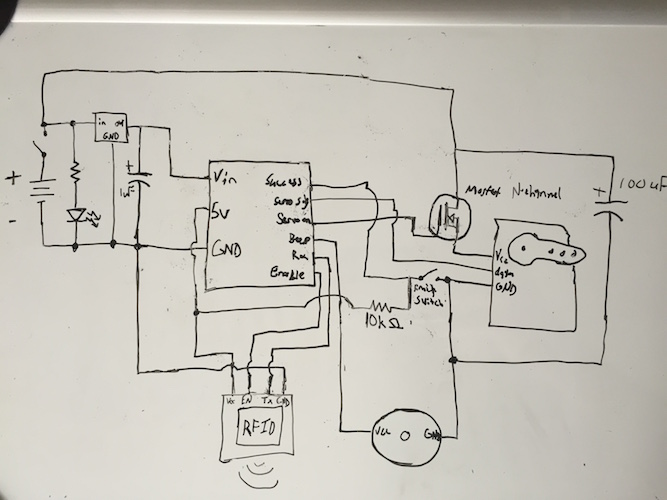 in out
GND
+
-
+
1uF
Vin
5V
GND
Success
Servo sig
Servo on
Beep
Rx
Enable
Mosfet N-channel
+ 100uF
Vcc
data
GND
Switch
10kΩ
Vcc EN Tx GND
RFID
Vcc GND